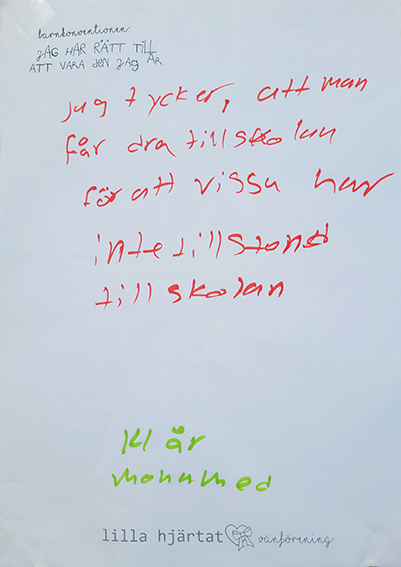 barnkonventionen:
JAG HAR RÄTT TILL
ATT VARA DEN JAG ÄR
jag tycker, att man
får dra till skolan
för att vissa har
inte tillstond
till skolan
11 år
mohamed
lilla hjärtat vänförening